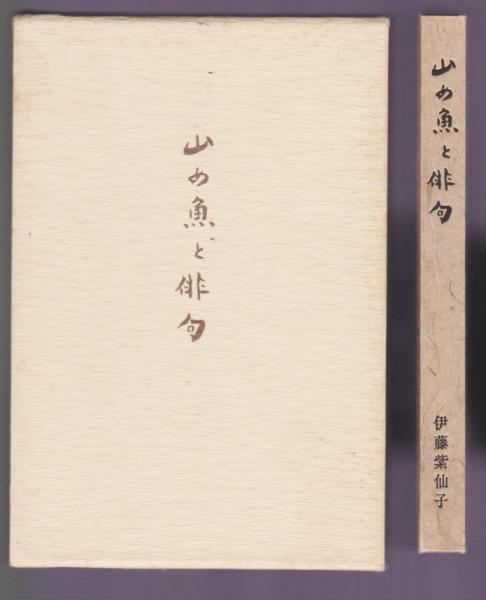 山め魚と俳句
山め魚と俳句
伊藤紫仙子